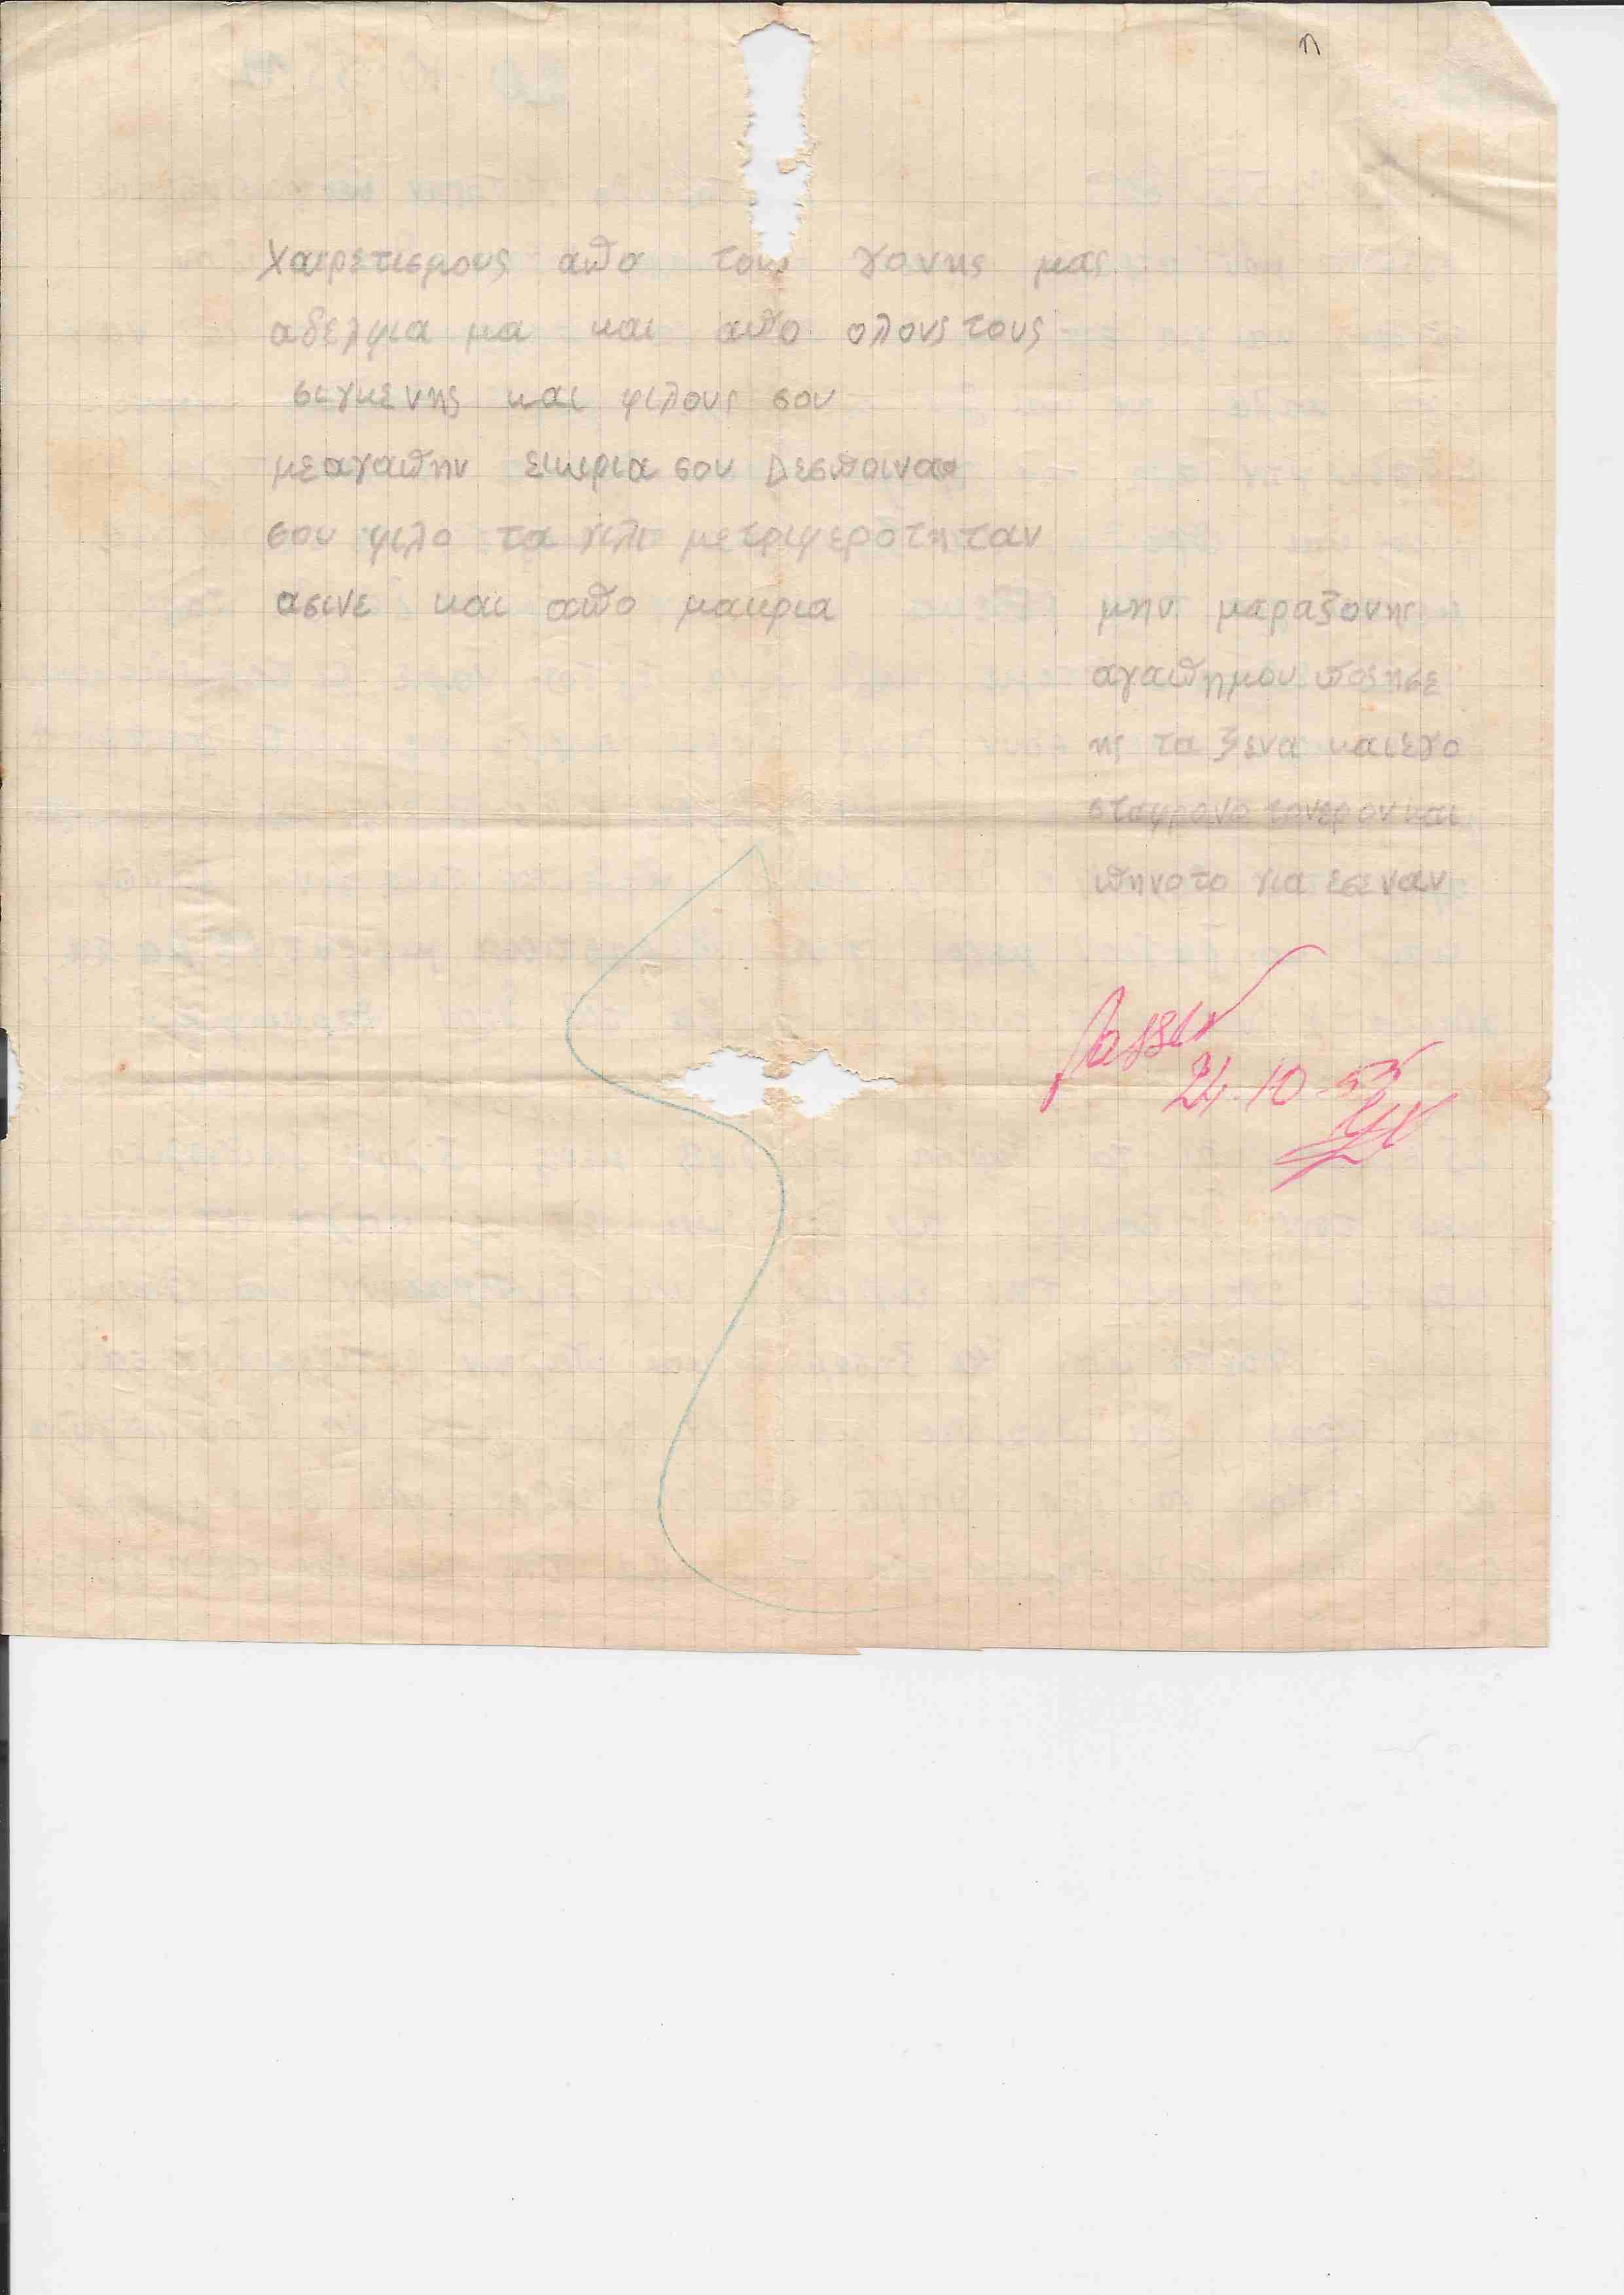 η
Χαιρετισμους απο τους γονης μας
αδελφια μα και απο ολους τους
σιγκενης και φιλους σου
μεαγαπην εικιρια σου Δεσποινα
σου φιλο τα γιλι μετριφεροτηταν
ασινε και απο μακρια
μην μαραζονης
αγαπημου ποςησε
ης τα ξενα καιεγο
σταφρονο τονερον και
πηνοτο για εσεναν
Passed
24.10.53